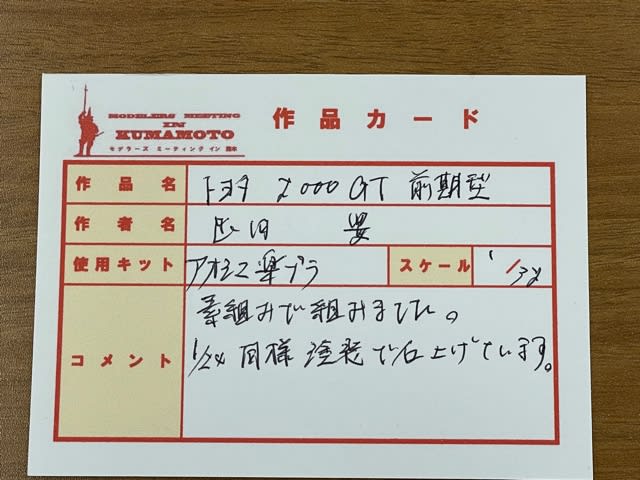 MODELERS MEETING
IN
KUMAMOTO
モデラーズ ミーティング イン 熊本
作品カード
作品名 トヨタ 2000GT 前期型
作者名
使用キット アオシマ楽プラ スケール 1/32
コメント 素組みで組みました。
1/24同様 塗装で仕上げています。